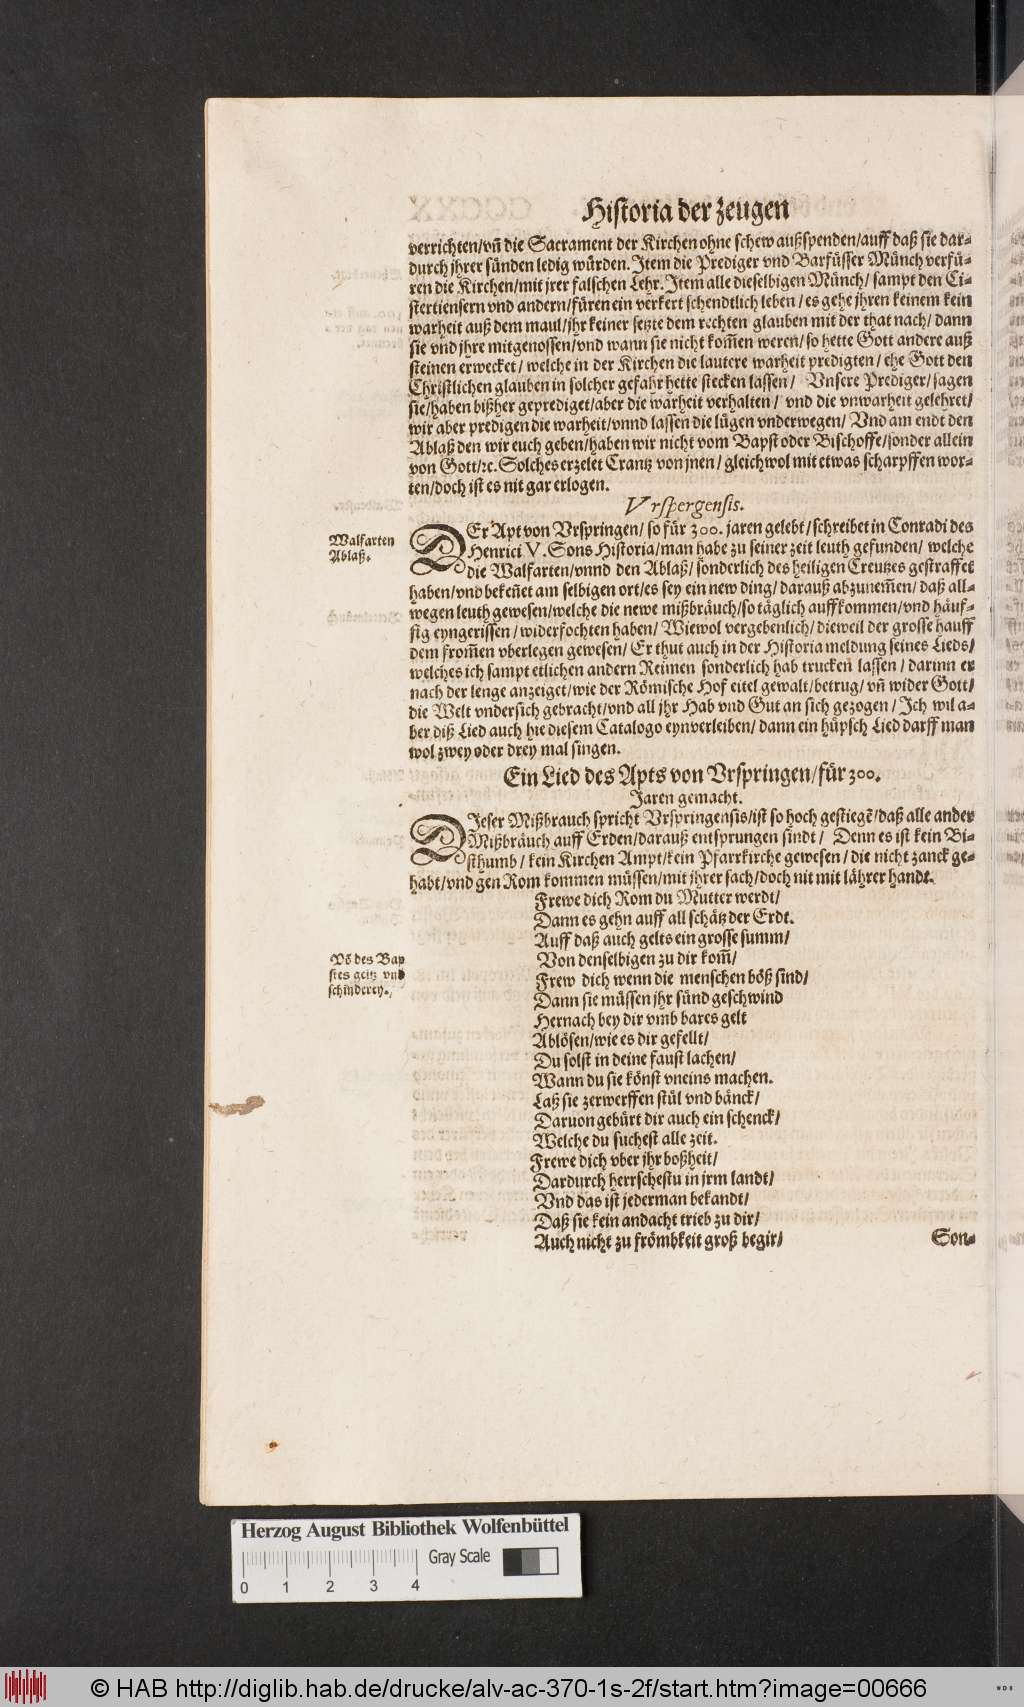 Historia der zeugen
verrichten/vñ die Sacrament der Kirchen ohne schew außspenden/auff daß sie dar-
durch jhrer sünden ledig würden. Item die Prediger vnd Barfüsser Münch verfü-
ren die Kirchen/mit jrer falschen Lehr. Item alle dieselbigen Münch/ sampt den Ci-
stertiensern vnd andern/füren ein verkert schendtlich leben/es gehe jhren keinem kein
warheit auß dem maul/jhr keiner setzte dem rechten glauben mit der that nach/ dann
sie vnd jhre mitgenossen/vnd wann sie nicht kom̃en weren/so hette Gott andere auß
steinen erwecket/ welche in der Kirchen die lautere warheit predigten/ ehe Gott den
Christlichen glauben in solcher gefahr hette stecken lassen/ Vnsere Prediger/sagen
sie/haben bißher geprediget/aber die warheit verhalten/ vnd die vnwarheit gelehret/
wir aber predigen die warheit/vnnd lassen die lügen vnderwegen/ Vnd am endt den
Ablaß den wir euch geben/haben wir nicht vom Bapst oder Bischoffe/sonder allein
von Gott/ꝛc. Solches erzelet Crantz von jnen/ gleichwol mit etwas scharpffen wor-
ten/doch ist es nit gar erlogen.
Vrspergensis.
Walfarten
Ablaß.
DEr Apt von Vrspringen/ so für 300. jaren gelebt/schreibet in Conradi des
Henrici V. Sons Historia/man habe zu seiner zeit leuth gefunden/ welche
die Walfarten/vnnd den Ablaß/sonderlich des heiligen Creutzes gestraffet
haben/vnd bekeñet am selbigen ort/es sey ein new ding/ darauß abzunem̃en/ daß all-
wegen leuth gewesen/welche die newe mißbräuch/so täglich auffkommen/vnd häuf-
fig eyngerissen/widerfochten haben/ Wiewol vergebenlich/dieweil der grosse hauff
dem from̃en vberlegen gewesen/ Er thut auch in der Historia meldung seines Lieds/
welches ich sampt etlichen andern Reimen sonderlich hab trucken lassen/ darinn er
nach der lenge anzeiget/wie der Römische Hof eitel gewalt/betrug/vñ wider Gott/
die Welt vndersich gebracht/vnd all jhr Hab vnd Gut an sich gezogen/Ich wil a-
ber diß Lied auch hie diesem Catalogo eynverleiben/dann ein hüpsch Lied darff man
wol zwey oder drey mal singen.
Ein Lied des Apts von Vrspringen/für 300.
Jaren gemacht.
DIeser Mißbrauch spricht Vrspringensis/ist so hoch gestiegẽ/daß alle ander
Mißbräuch auff Erden/darauß entsprungen sindt/ Denn es ist kein Bi-
sthumb/kein Kirchen Ampt/kein Pfarrkirche gewesen/die nicht zanck ge-
habt/vnd gen Rom kommen müssen/mit jhrer sach/doch nit mit lährer handt.
Frewe dich Rom du Mutter werdt/
Dann es gehn auff all schätz der Erdt.
Auff daß auch gelts ein grosse summ/
Võ des Bap
stes geitz vnd
schinderey.
Von denselbigen zu dir kom̃/
Frew dich wenn die menschen böß sind/
Dann sie müssen jhr sünd geschwind
Hernach bey dir vmb bares gelt
Ablösen/wie es dir gefellt/
Du solst in deine faust lachen/
Wann du sie könst vneins machen.
Laß sie zerwerffen stül vnd bänck/
Daruon gebürt dir auch ein schenck/
Welche du suchest alle zeit.
Frewe dich vber jhr boßheit/
Dardurch herrschestu in jrm landt/
Vnd das ist jederman bekandt/
Daß sie kein andacht trieb zu dir/
Auch nicht zu frömbkeit groß begir/
Son-
Herzog August Bibliothek Wolfenbüttel
Gray Scale
0 1 2 3 4
© HAB http://diglib.hab.de/drucke/alv-ac-370-1s-2f/start.htm?image=00666